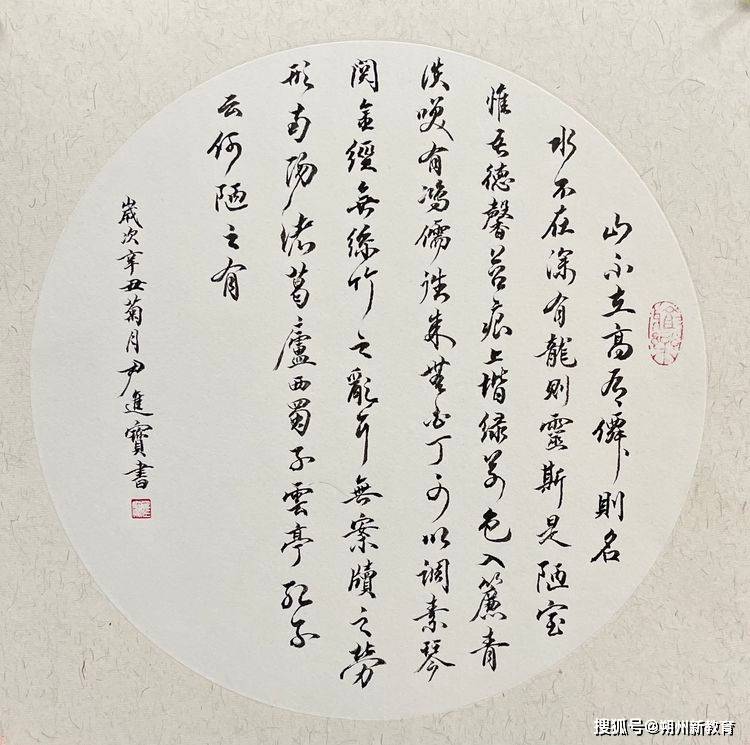 山不在高有僊則名
水不在深有龍則靈斯是陋室
惟吾德馨苔痕上堦緑草色入簾青
談咲有鴻儒往来無白丁可以調素琴
閱金經無絲竹之亂耳無案牘之勞
形南陽诸葛廬西蜀子雲亭孔子
云何陋之有
歲次辛丑菊月尹進寶書
搜狐号@朔州新教育